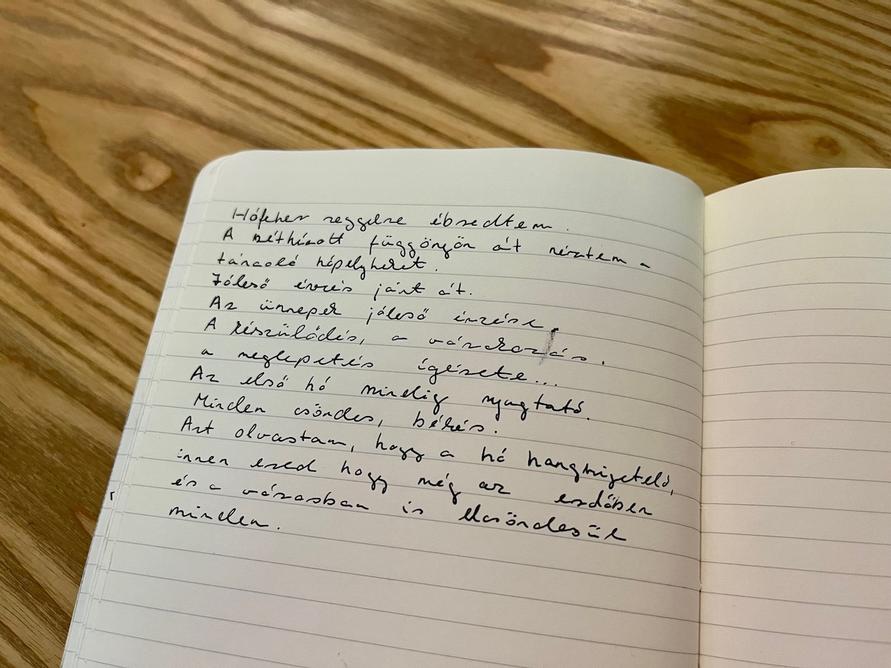 Hófeher reggelre ébredtem.
A széthúzott függönyön át néztem a
táncoló hópelyheket.
Jóleső érzés járt át.
Az ünnepek jóleső érzése.
A készülődés, a várakozás.
a meglepetés ígérete...
Az első hó mindig nyugtató.
Minden csöndes, békés.
Azt olvastam, hogy a hó hangszigetelő,
innen ered hogy még az erdőben
és a városban is elcsöndesül
minden.